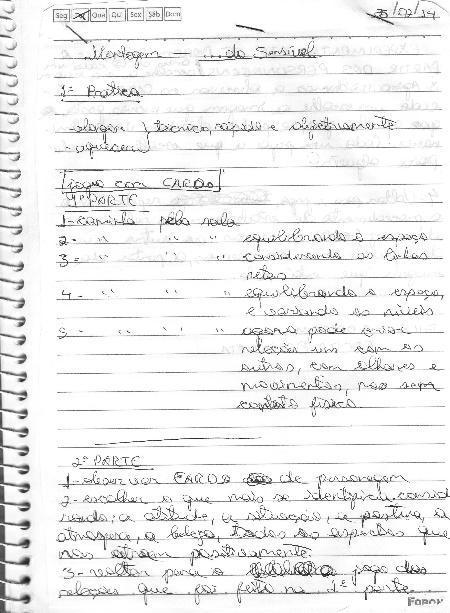 Seg Qua Qui Sex Sáb Dom
25/02/14
Montagem do Sensível
1ª Prática
- alongar } técnica, rápida e objetivamente
- aquecer
jogo com CARDS
1ª PARTE
1- caminha pela sala
2- " " " equilibrando o espaço
3- " " " considerando as linhas
retas
4- " " " equilibrando o espaço,
e variando os níveis
5- " " " agora pode criar
relações um com os
outros, com olhares e
movimentos, mas sem
contato físico
2ª PARTE
1- observar CARDS de personagem
2- escolher o que mais se identificou consid
rando: a atitude, a situação, a postura, a
atmosfera, a beleza, todos os aspectos que
nos atraem positivamente.
3- voltar para o jogo das
relações que foi feito na 1ª parte
FORONI